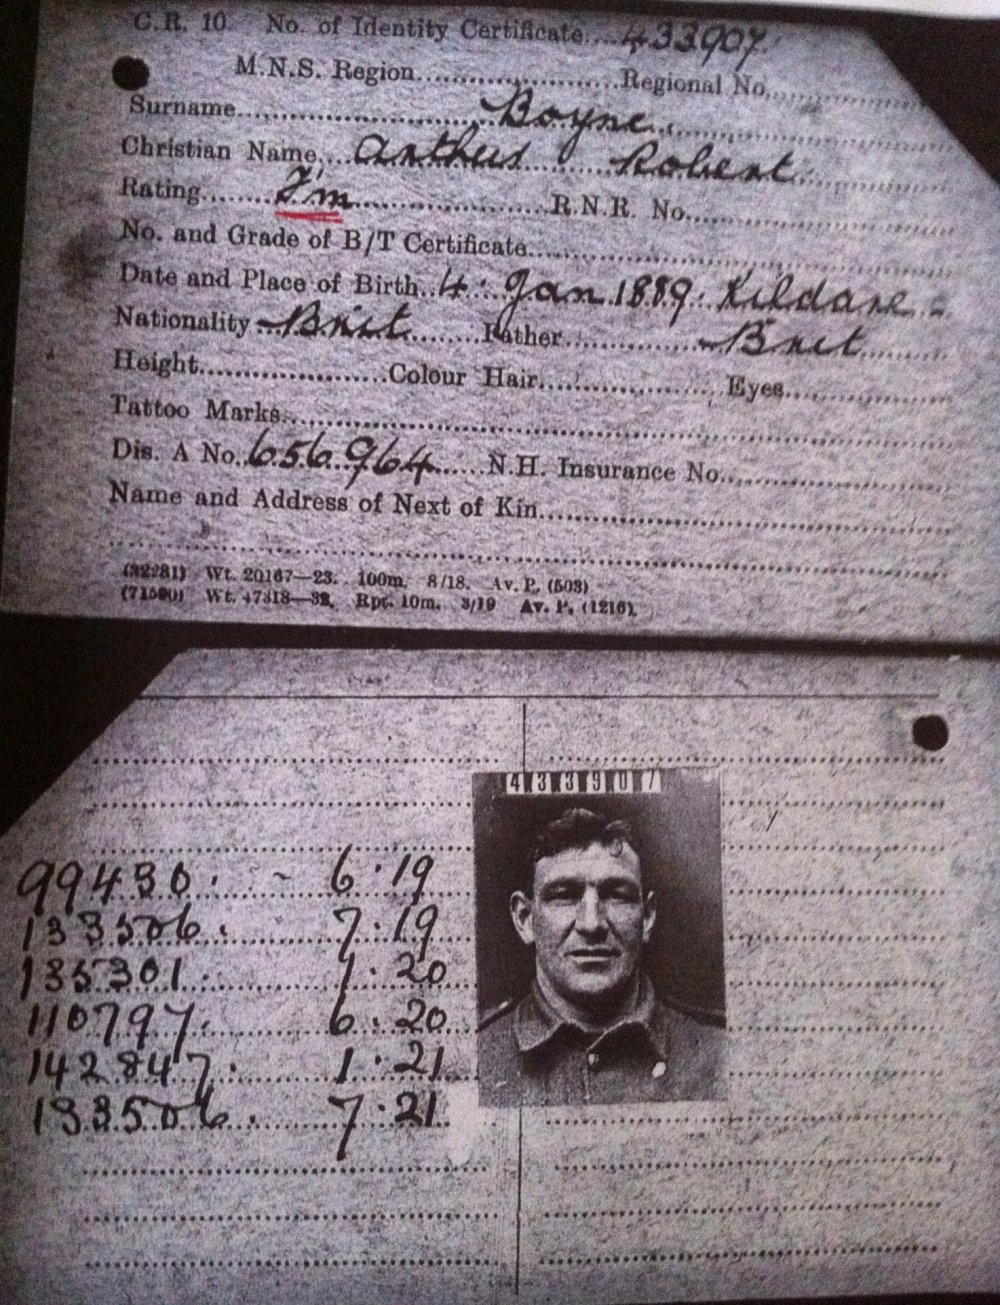 C.R. 10. No. of Identity Certificate....433907.
M.N.S. Region....................Regional No...............
Surname.................Boyne.................
Christian Name....Arthur Robert...
Rating.......F'm...................R.N.R. No...............
No. and Grade of B/T Certificate..............................
Date and Place of Birth..4. Jan. 1889. Kildare -
Nationality Brit.......Father............Brit..........
Height....................Colour Hair................. Eyes...............
Tattoo Marks..............................
Dis. A No. 656964.....N.H. Insurance No...............
Name and Address of Next of Kin..............................
(32281) Wt. 20167—23. 100m. 8/18. Av. P. (503)
Wt. 47318—32. Rpt. 10m. 3/19 Av. P. (1216).
433907
99430. - 6.19
133506. 7.19
135301. 1.20
110797. 6.20
142847. 1.21
133506. 7.21